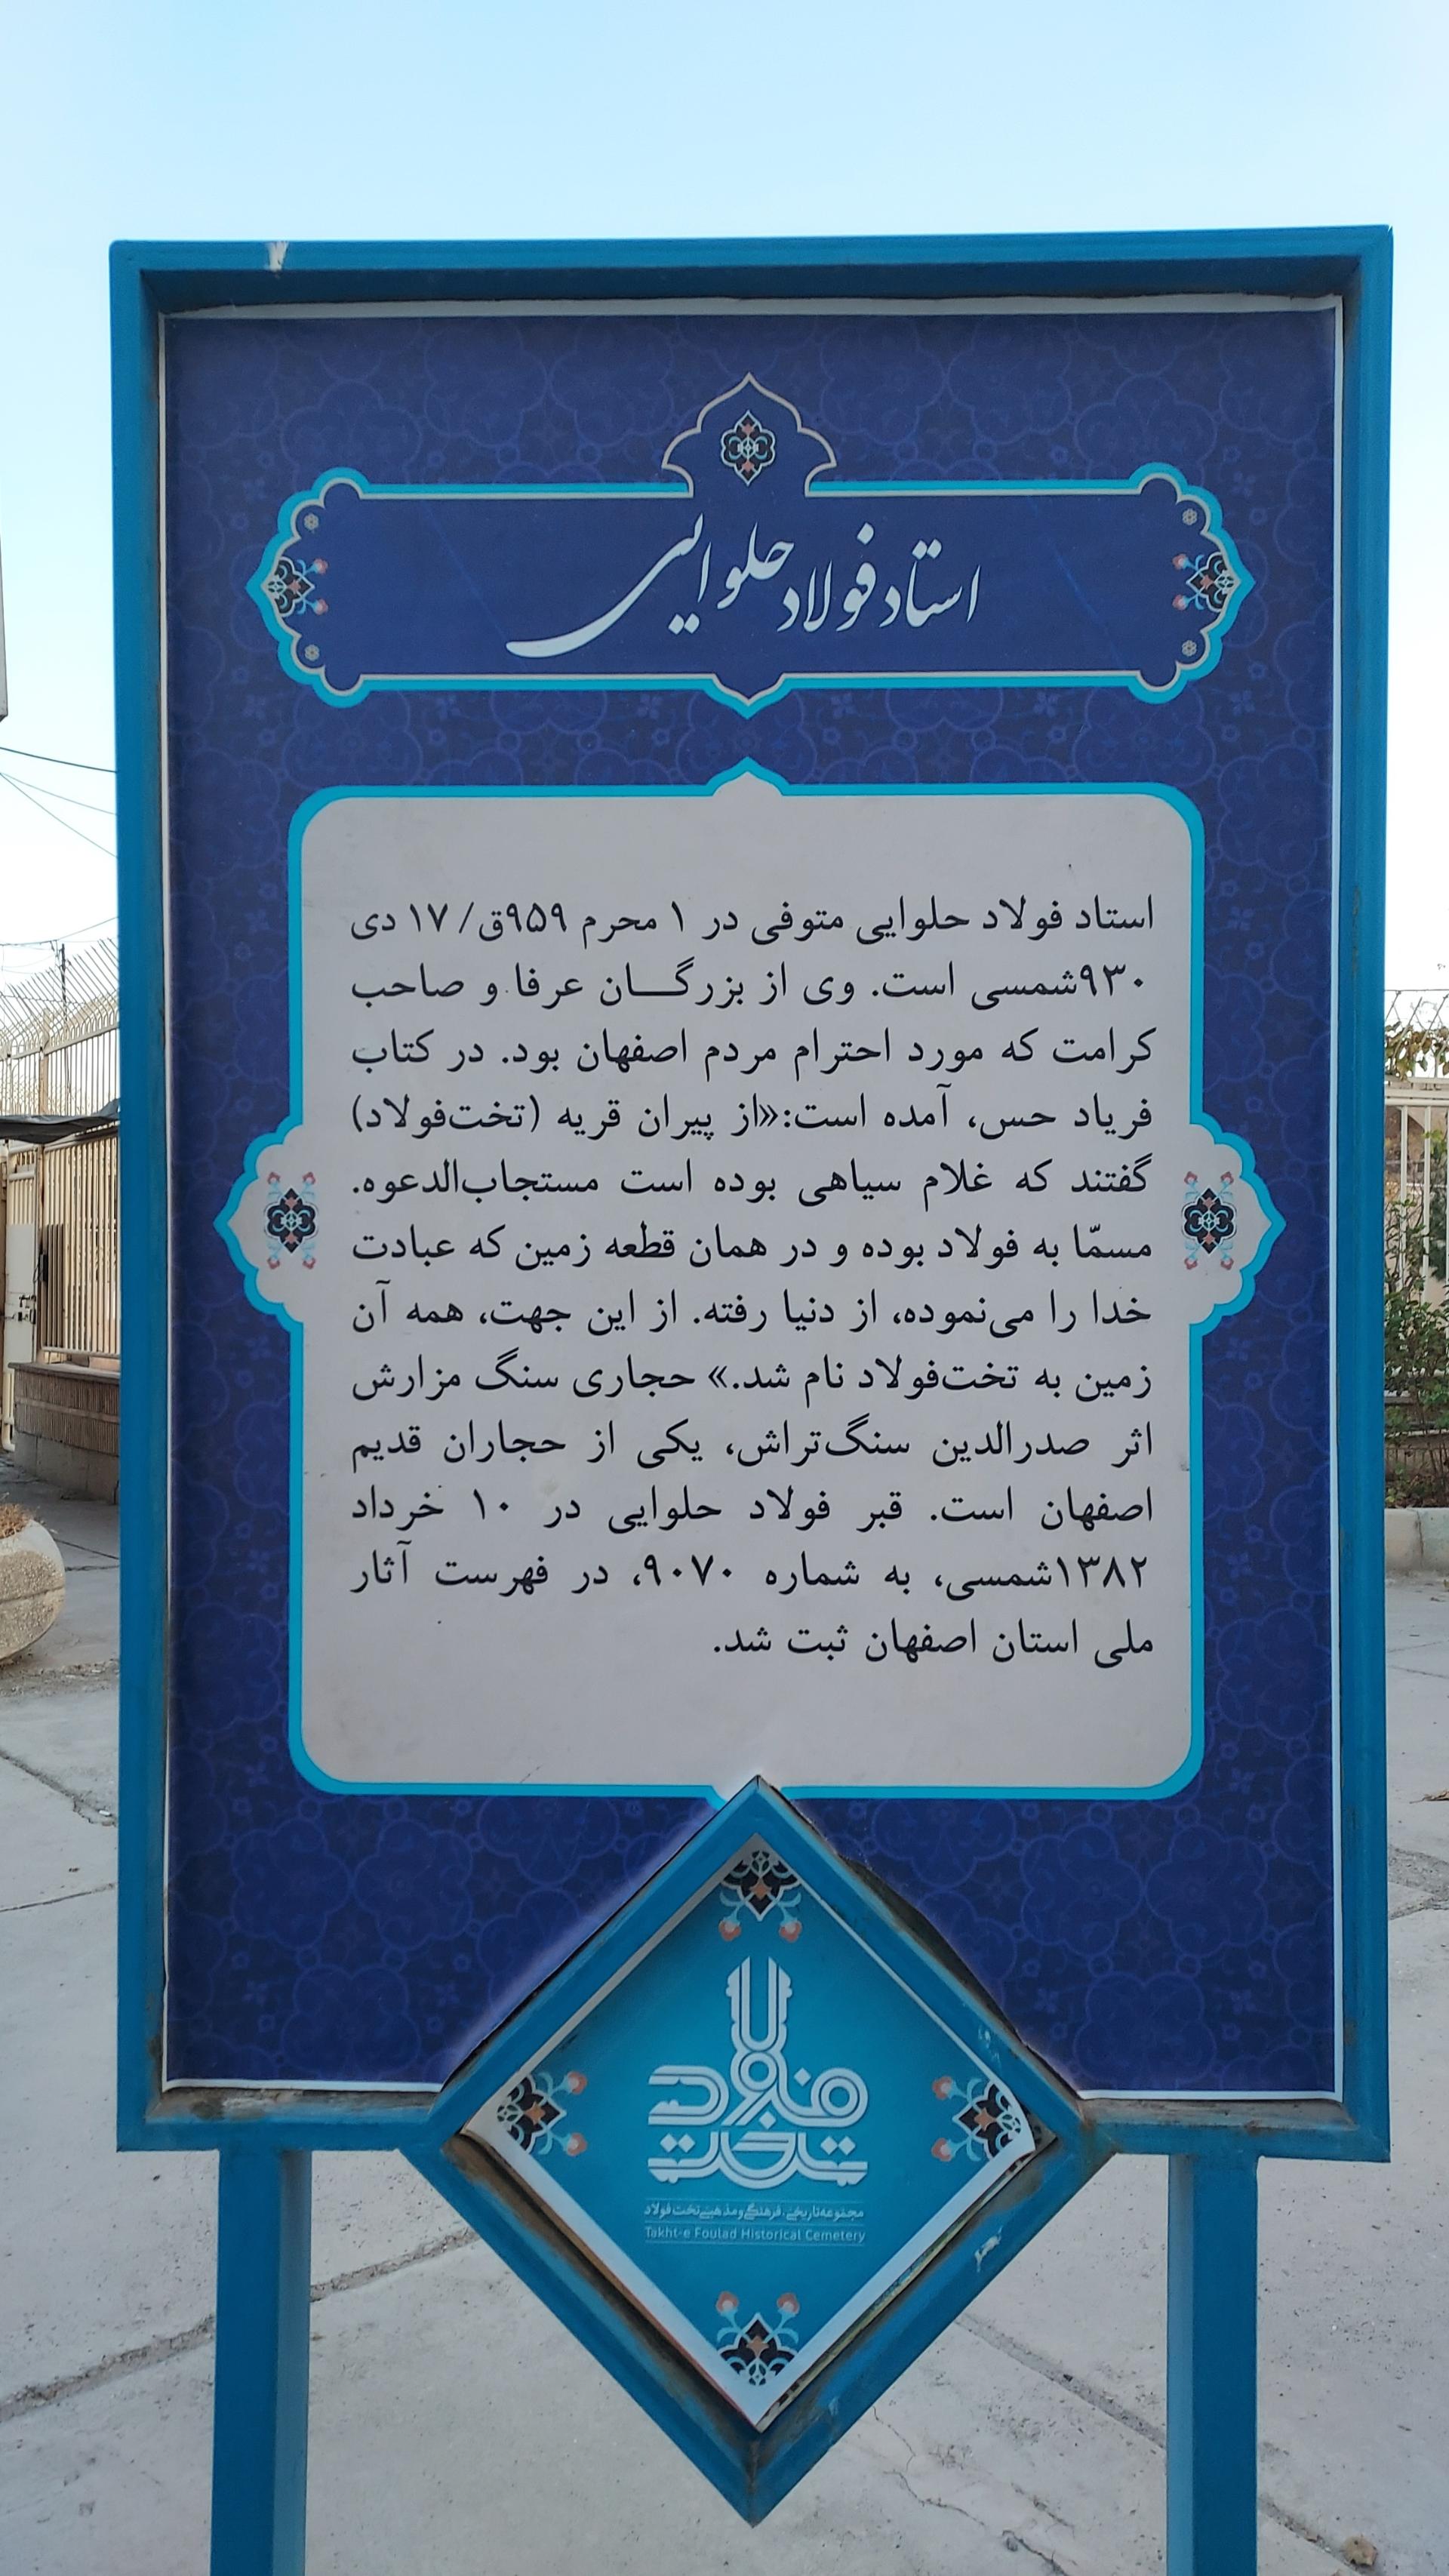 استاد فولاد حلوایی
استاد فولاد حلوایی متوفی در ۱ محرم ۹۵۹ق/ ۱۷ دی
۹۳۰شمسی است. وی از بزرگـــان عرفا و صاحب
کرامت که مورد احترام مردم اصفهان بود. در کتاب
فریاد حس، آمده است:«از پیران قریه (تخت‌فولاد)
گفتند که غلام سیاهی بوده است مستجاب‌الدعوه.
مسمّا به فولاد بوده و در همان قطعه زمین که عبادت
خدا را می‌نموده، از دنیا رفته. از این جهت، همه آن
زمین به تخت‌فولاد نام شد.» حجاری سنگ مزارش
اثر صدرالدین سنگ‌تراش، یکی از حجاران قدیم
اصفهان است. قبر فولاد حلوایی در ۱۰ خرداد
۱۳۸۲شمسی، به شماره ۹۰۷۰، در فهرست آثار
ملی استان اصفهان ثبت شد.
تخت فولاد
مجموعه تاریخی، فرهنگی و مذهبی تخت فولاد
Takht-e Foulad Historical Cemetery